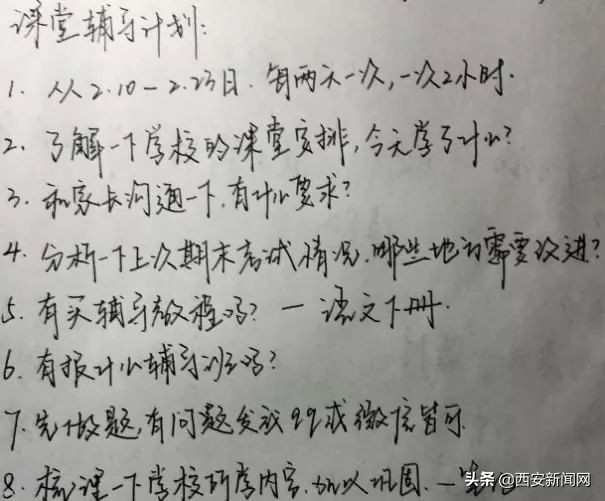 课堂辅导计划:
1. 从2.10-2.23日.每两天一次,一次2小时.
2. 了解一下学校的课堂安排,今天学了什么?
3. 和家长沟通一下.有什么要求?
4. 分析一下上次期末考试情况.哪些地方需要改进?
5. 有买辅导教程吗? — 语文下册.
6. 有报什么辅导班吗?
7. 先做题,有问题发我qq或微信皆可.
8. 梳理一下学校所学内容.加以巩固.一
头条 @西安新闻网